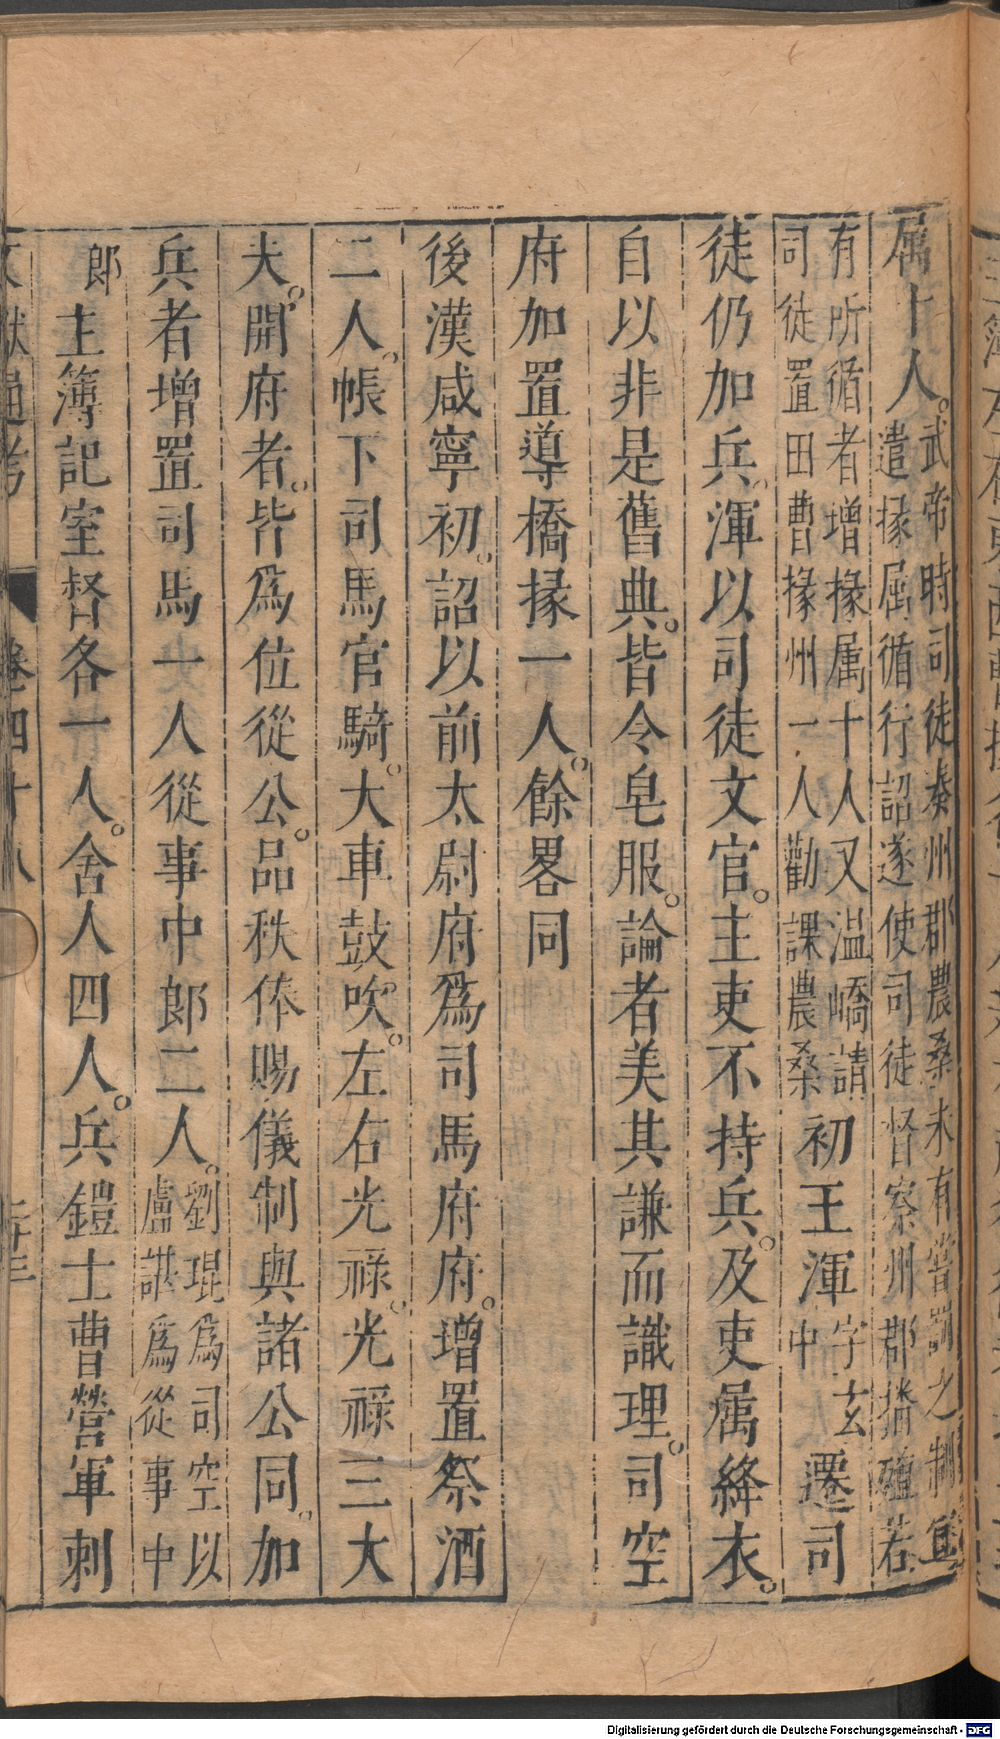 属十人。武帝時司徒奏州郡農桑未有賞罰之制宜
遣掾属循行詔遂使司徒督察州郡播殖若
有所循者增掾属十人又温嶠請
司徒置田曹掾州一人勸課農桑初王渾字玄中遷司
徒仍加兵。渾以司徒文官。主吏不持兵。及吏属絳衣。
自以非是舊典。皆令皂服。論者美其謙而識理。司空
府加置導橋掾一人。餘畧同
後漢咸寧初。詔以前太尉府爲司馬府府。增置祭酒
二人。帳下司馬官騎。大車鼓吹。左右光祿。光祿三大
夫。開府者。皆爲位從公。品秩俸賜儀制與諸公同。加
兵者增置司馬一人從事中郎二人。劉琨爲司空以
盧諶爲從事中
郎主簿記室督各一人。舍人四人。兵鎧士曹營軍刺
文獻通考 卷四十八
Digitalisierung gefördert durch die Deutsche Forschungsgemeinschaft - DFG